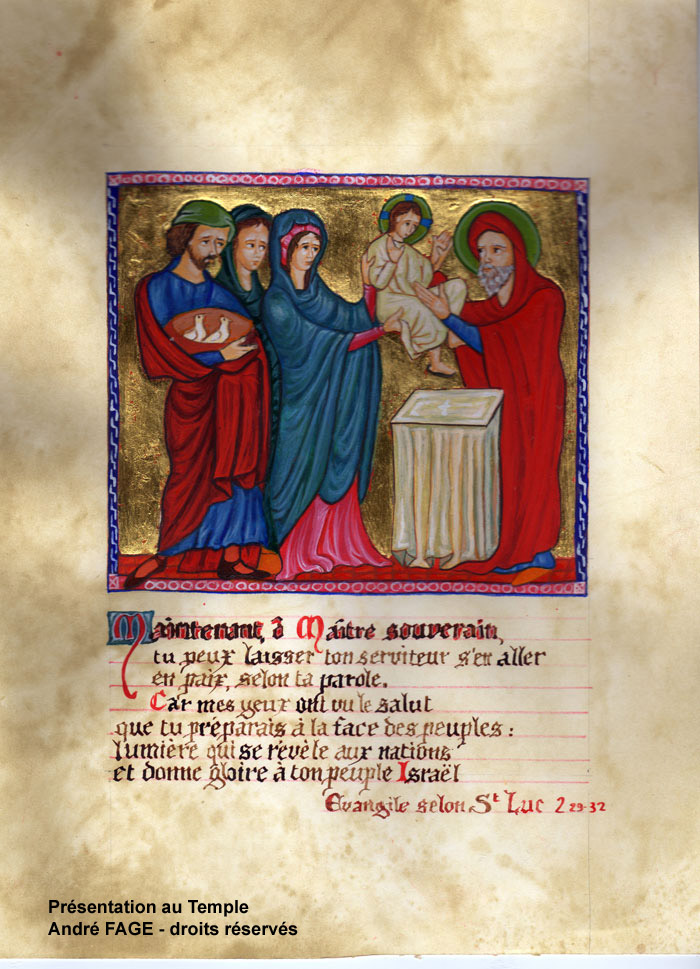 Maintenant, ô Maître souverain,
tu peux laisser ton serviteur s'en aller
en paix, selon ta parole.
Car mes yeux ont vu le salut
que tu préparais à la face des peuples :
lumière qui se révèle aux nations
et donne gloire à ton peuple Israël
Evangile selon St Luc 2 29-32
Présentation au Temple
André FAGE - droits réservés